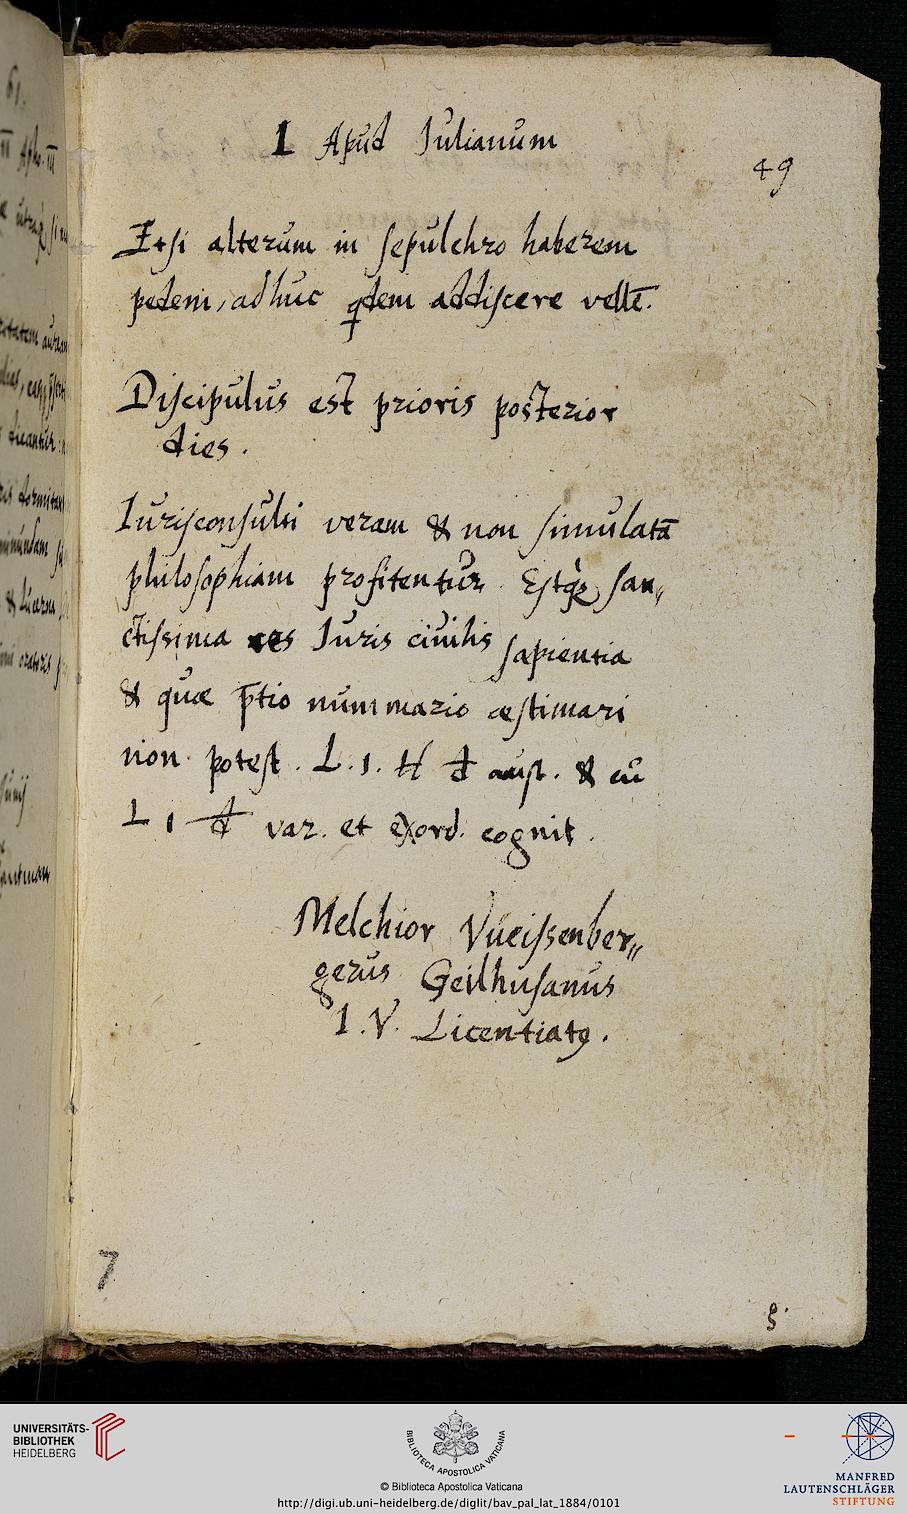 I Apud Iulianum
49
Etsi alterum in sepulchro haberem
pedem, adhuc qdem addiscere vellē.
Discipulus est prioris posterior
dies.
Iurisconsulti veram & non simulatā
philosophiam profitentur. Estq; san„
ctissima res Iuris civilis sapientia
& quæ p̄tio nummario æstimari
non potest. L. 1. & cū
L 1 var. et exord. cognit.
Melchior Vueissenber„
gerus Geilhusanus
I. V. Licentiatꝰ.
7
UNIVERSITÄTS-
BIBLIOTHEK
HEIDELBERG
BIBLIOTECA APOSTOLICA VATICANA
© Biblioteca Apostolica Vaticana
http://digi.ub.uni-heidelberg.de/diglit/bav_pal_lat_1884/0101
MANFRED
LAUTENSCHLÄGER
STIFTUNG